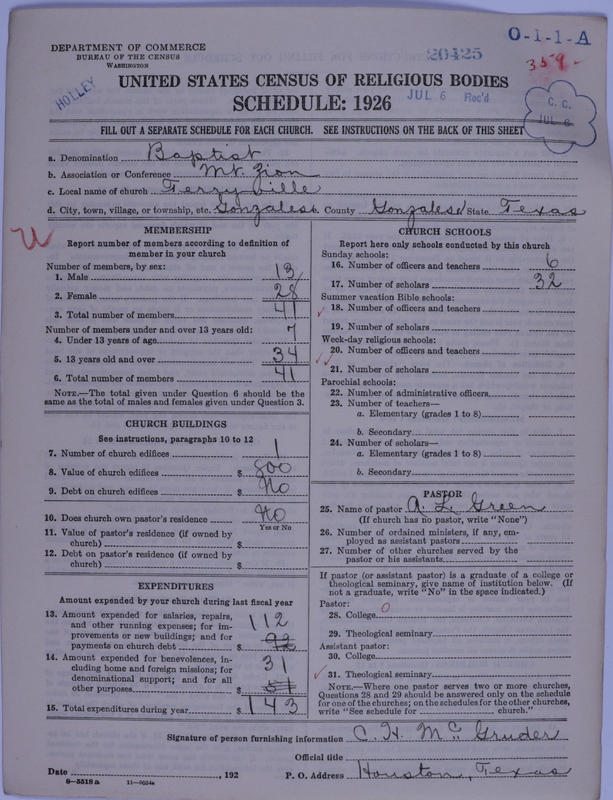 DEPARTMENT OF COMMERCE
BUREAU OF THE CENSUS
WASHINGTON
HOLLEY
20425
O-1-1-A
359
UNITED STATES CENSUS OF RELIGIOUS BODIES
SCHEDULE: 1926
JUL 6 Rec'd
C. C.
JUL 6
FILL OUT A SEPARATE SCHEDULE FOR EACH CHURCH. SEE INSTRUCTIONS ON THE BACK OF THIS SHEET
a. Denomination Baptist
b. Association or Conference Mt. Zion
c. Local name of church Terryville
d. City, town, village, or township, etc. Gonzales County Gonzales State Texas
U
MEMBERSHIP
Report number of members according to definition of
member in your church
Number of members, by sex:
1. Male 13
2. Female 28
3. Total number of members 41
Number of members under and over 13 years old:
4. Under 13 years of age 7
5. 13 years old and over 34
6. Total number of members 41
NOTE.—The total given under Question 6 should be
the same as the total of males and females given under Question 3.
CHURCH BUILDINGS
See instructions, paragraphs 10 to 12
7. Number of church edifices 1
8. Value of church edifices $ 800
9. Debt on church edifices $ No
10. Does church own pastor's residence No
Yes or No
11. Value of pastor's residence (if owned by
church) $
12. Debt on pastor's residence (if owned by
church) $
EXPENDITURES
Amount expended by your church during last fiscal year
13. Amount expended for salaries, repairs,
and other running expenses; for im-
provements or new buildings; and for
payments on church debt $ 112
92
14. Amount expended for benevolences, in-
cluding home and foreign missions; for
denominational support; and for all
other purposes $ 31
51
15. Total expenditures during year $ 143
CHURCH SCHOOLS
Report here only schools conducted by this church
Sunday schools:
16. Number of officers and teachers 6
17. Number of scholars 32
Summer vacation Bible schools:
18. Number of officers and teachers
19. Number of scholars
Week-day religious schools:
20. Number of officers and teachers
21. Number of scholars
Parochial schools:
22. Number of administrative officers
23. Number of teachers—
a. Elementary (grades 1 to 8)
b. Secondary
24. Number of scholars—
a. Elementary (grades 1 to 8)
b. Secondary
PASTOR
25. Name of pastor A. L. Green
(If church has no pastor, write "None")
26. Number of ordained ministers, if any, em-
ployed as assistant pastors
27. Number of other churches served by the
pastor or his assistants
If pastor (or assistant pastor) is a graduate of a college or
theological seminary, give name of institution below. (If
not a graduate, write "No" in the space indicated.)
Pastor:
28. College 0
29. Theological seminary
Assistant pastor:
30. College
31. Theological seminary
NOTE.—Where one pastor serves two or more churches,
Questions 28 and 29 should be answered only on the schedule
for one of the churches; on the schedules for the other churches,
write "See schedule for church."
Signature of person furnishing information C. H. McGruder
Official title
Date , 192 P. O. Address Houston, Texas
8-5518 a 11-9634a